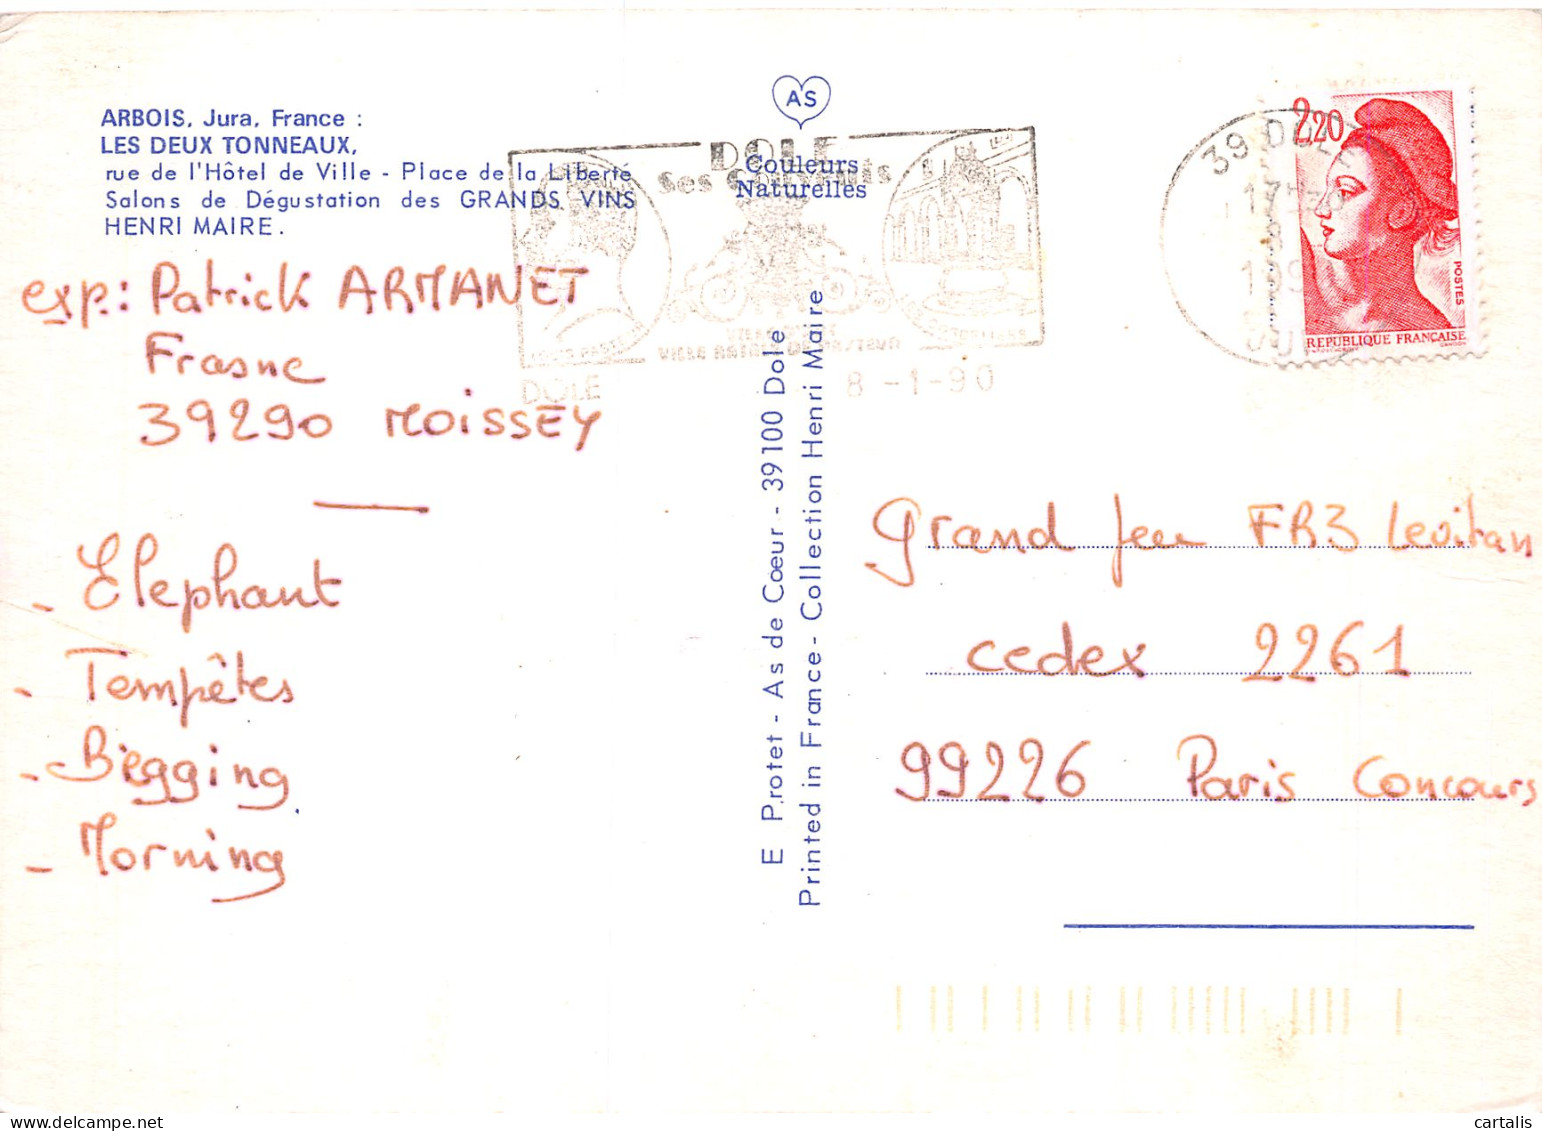 ARBOIS, Jura, France :
LES DEUX TONNEAUX,
rue de l'Hôtel de Ville - Place de la Liberté
Salons de Dégustation des GRANDS VINS
HENRI MAIRE.
exp: Patrick ARMANET
Frasne
39290 MOISSEY
- Elephant
- Tempêtes
- Begging
- Morning
AS
Couleurs
Naturelles
DOLE
Ses Couvents
DOLE
8 -1-90
E Protet - As de Coeur - 39100 Dole
Printed in France - Collection Henri Maire
39 DOLE
17H
2,20
POSTES
REPUBLIQUE FRANÇAISE
Grand Jeu FR3 Levitan
cedex 2261
99226 Paris Concours
cartalis